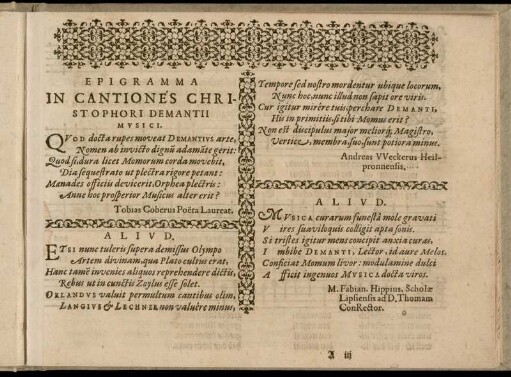 EPIGRAMMA
IN CANTIONES CHRI-
STOPHORI DEMANTII
MVSICI.
QVOD docta rupes moveat DEMANTIVS arte,
Nomen ab invicto dignũ adamãte gerit:
Quod si dura licet Momorum corda movebit,
Dia sequestrato ut plectra rigore petant:
Manades officiu devicerit Orphea plectris:
Anne hoc prosperior Musicus alter erit?
Tobias Coberus Poëta Laureat.
ALIVD.
ETSI nunc tuleris supera demissus Olympo
Artem divinam, qua Plato cultus erat,
Hanc tamẽ invenies aliquos reprehendere dictis,
Rebus ut in cunctis Zoylus esse solet.
ORLANDVS valuit permultum cantibus olim,
LANGIVS & LECHNER non valuêre minus,
Tempore sed nostro mordentur ubique locorum,
Nunc hoc, nunc illud non sapit ore viris.
Cur igitur mirêre tuis, perchare DEMANTI,
His in primitiis si tibi Momus erit?
Non est discipulus major meliorq́; Magistro,
Vertice, membra suo sunt potiora minus.
Andreas VVeckerus Heil-
pronnensis.
ALIVD.
MVSICA, curarum funestâ mole gravati
Vires suaviloquis colligit apta sonis.
Si tristes igitur mens concipit anxia curas,
Imbibe DEMANTI, Lector, id aure Melos.
Conficiat Momum livor: modulamine dulci
Afficit ingenuos MVSICA docta viros.
M. Fabian. Hippius, Scholæ
Lipsiensis ad D. Thomam
ConRector.
A iij